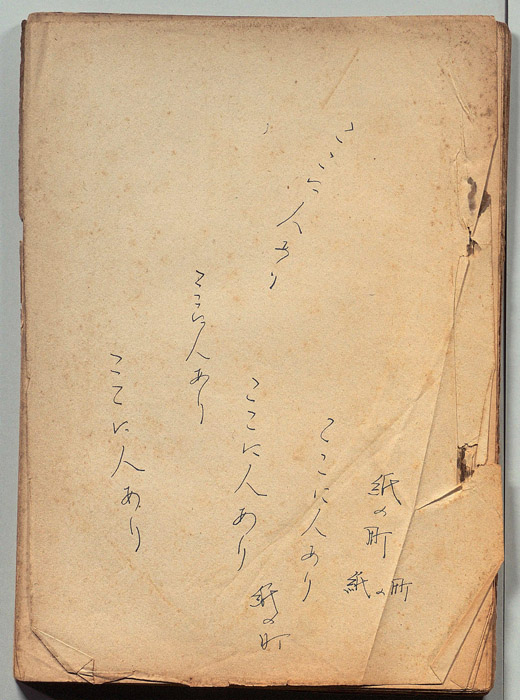 紙の町
紙の町
ここに人あり
ここに人あり
紙の町
ここに人あり
ここに人あり
ここに人あり